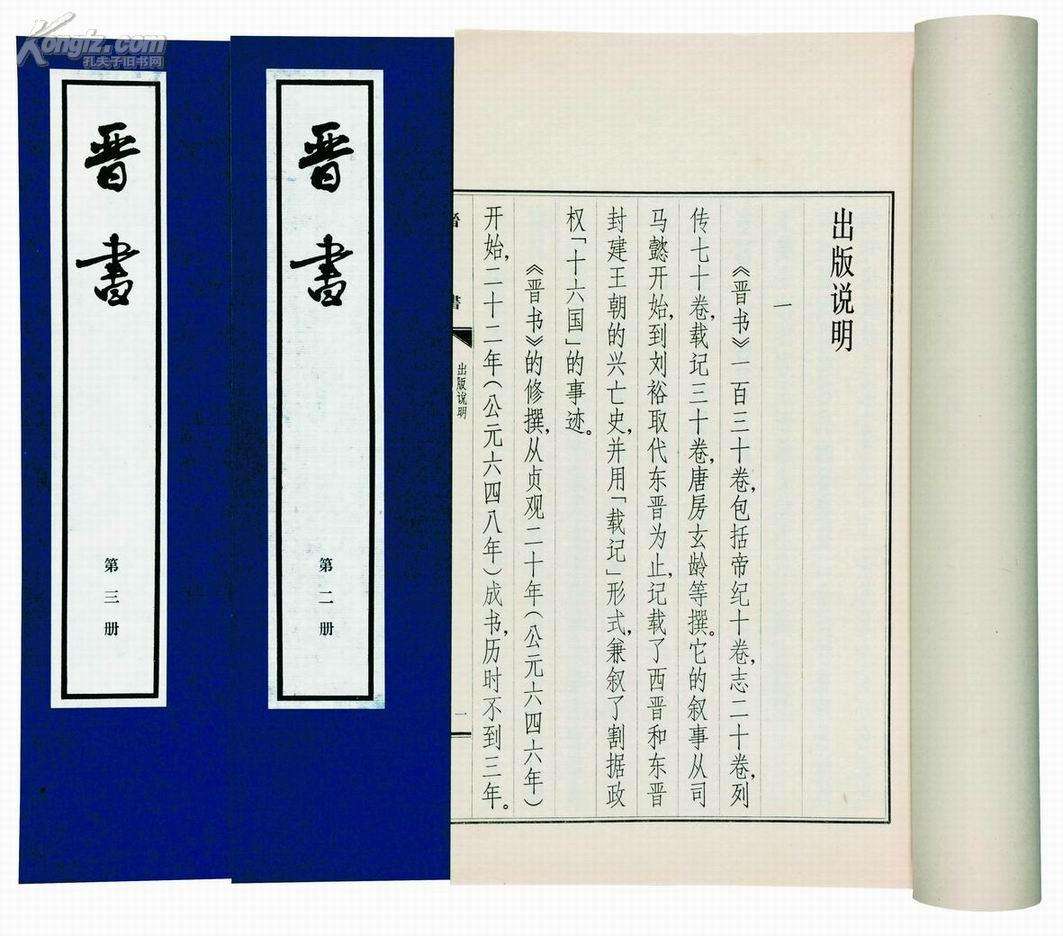 Kongfz.com
孔夫子旧书网
出版说明
一
《晋书》一百三十卷,包括帝纪十卷,志二十卷,列
传七十卷,载记三十卷,唐房玄龄等撰。它的叙事从司
马懿开始,到刘裕取代东晋为止,记载了西晋和东晋
封建王朝的兴亡史,并用「载记」形式,兼叙了割据政
权「十六国」的事迹。
《晋书》的修撰,从贞观二十年(公元六四六年)
开始,二十二年(公元六四八年)成书,历时不到三年。
出版说明
一
晋书
第二册
晋书
第三册